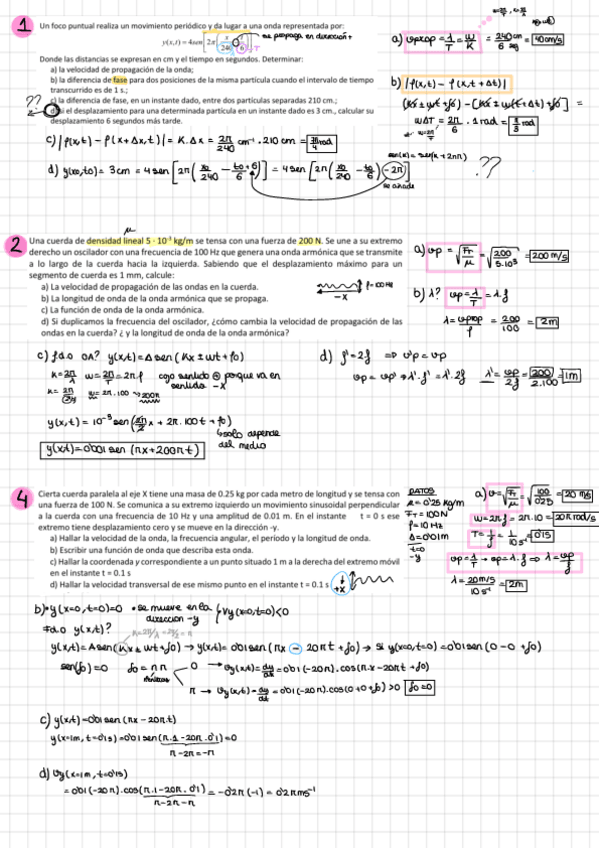 1 Un foco puntual realiza un movimiento periódico y da lugar a una onda representada por:
y(x,t) = 4sen[2π(x/240 - t/6)] se propaga en dirección +
Donde las distancias se expresan en cm y el tiempo en segundos. Determinar:
a) la velocidad de propagación de la onda;
b) la diferencia de fase para dos posiciones de la misma partícula cuando el intervalo de tiempo
transcurrido es de 1 s.;
?? c) la diferencia de fase, en un instante dado, entre dos partículas separadas 210 cm.;
d) si el desplazamiento para una determinada partícula en un instante dado es 3 cm., calcular su
desplazamiento 6 segundos más tarde.
a) vprop = λ/T = w/K = 240 cm/6 seg = 40 cm/s
b) |φ(x,t) - φ(x,t+Δt)|
(kx ± wt + φ0) - (kx ± w(t+Δt) + φ0) =
wΔT = 2π/6 · 1 rad = π/3 rad
c) |φ(x,t) - φ(x+Δx,t)| = K·Δx = 2π/240 cm⁻¹ · 210 cm = 7π/4 rad
sen(x) = sen(x+2πn)
d) y(x0,t0) = 3cm = 4sen[2π(x0/240 - t0+6/6)] = 4sen[2π(x0/240 - t0/6) - 2π] ??
se añade
μ
2 Una cuerda de densidad lineal 5 · 10⁻³ kg/m se tensa con una fuerza de 200 N. Se une a su extremo
derecho un oscilador con una frecuencia de 100 Hz que genera una onda armónica que se transmite
a lo largo de la cuerda hacia la izquierda. Sabiendo que el desplazamiento máximo para un
segmento de cuerda es 1 mm, calcule:
a) La velocidad de propagación de las ondas en la cuerda.
b) La longitud de onda de la onda armónica que se propaga.
c) La función de onda de la onda armónica.
d) Si duplicamos la frecuencia del oscilador, ¿cómo cambia la velocidad de propagación de las
ondas en la cuerda? ¿ y la longitud de onda de la onda armónica?
f=100Hz
-x
a) vp = √(FT/μ) = √(200/5·10⁻³) = 200 m/s
b) λ? vp = λ/T = λ·f
λ = vprop/f = 200/100 = 2m
c) fdo OA? y(x,t) = A sen(Kx ± wt + φ0)
K = 2π/λ w = 2π/T = 2π·f cojo sentido ⊕ porque va en
sentido -x
w = 2π·100 → 200π
y(x,t) = 10⁻³ sen(2π/2 x + 2π·100t + φ0)
↳ solo depende
del medio
y(x,t) = 0'001 sen(πx + 200πt)
d) f' = 2f ⇒ vp = vp
vp = vp' → λ'·f' = λ'·2f λ' = vp/2f = 200/2·100 = 1m
4 Cierta cuerda paralela al eje X tiene una masa de 0.25 kg por cada metro de longitud y se tensa con
una fuerza de 100 N. Se comunica a su extremo izquierdo un movimiento sinusoidal perpendicular
a la cuerda con una frecuencia de 10 Hz y una amplitud de 0.01 m. En el instante t = 0 s ese
extremo tiene desplazamiento cero y se mueve en la dirección -y.
a) Hallar la velocidad de la onda, la frecuencia angular, el período y la longitud de onda.
b) Escribir una función de onda que describa esta onda.
c) Hallar la coordenada y correspondiente a un punto situado 1 m a la derecha del extremo móvil
en el instante t = 0.1 s
d) Hallar la velocidad transversal de ese mismo punto en el instante t = 0.1 s
+x
DATOS
μ = 0'25 kg/m
FT = 100N
f = 10Hz
A = 0'01m
t=0
-y
a) v = √(FT/μ) = √(100/0'25) = 20 m/s
w = 2πf = 2π·10 = 20π rad/s
T = 1/f = 1/10 s⁻¹ = 0'1s
vp = λ/T → vp = λ·f ⇒ λ = vp/f
λ = 20m/s/10s⁻¹ = 2m
b) • y(x=0,t=0)=0 • se mueve en la
dirección -y } vy(x=0,t=0)<0
fdo y(x,t)? K=2π/λ = 2π/2 = π
y(x,t) = A sen(Kx ± wt + φ0) → y(x,t) = 0'01 sen(πx - 20πt + φ0) → si y(x=0,t=0) = 0'01 sen(0 - 0 + φ0)
sen(φ0)=0 φ0 = nπ 0 → vy(x,t) = dy/dt = 0'01(-20π)·cos(πx - 20πt + φ0)
π → vy(x,t) = dy/dt = 0'01(-20π)·cos(0+0+φ0) > 0 φ0=0
c) y(x,t) = 0'01 sen(πx - 20πt)
y(x=1m, t=0'1s) = 0'01 sen(π·1 - 20π·0'1) = 0
π - 2π = -π
d) vy(x=1m, t=0'1s)
= 0'01(-20π)·cos(π·1 - 20π·0'1) = -0'2π(-1) = 0'2π ms⁻¹
π - 2π - π